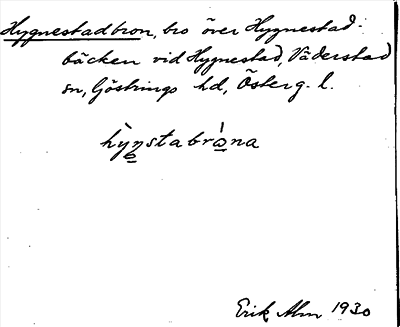 Hygnestadbron, bro över Hygnestad-
bäcken vid Hygnestad, Väderstad
sn, Göstrings hd, Österg. l.
hy̤nstabrɷ̀na
Erik Alm 1930